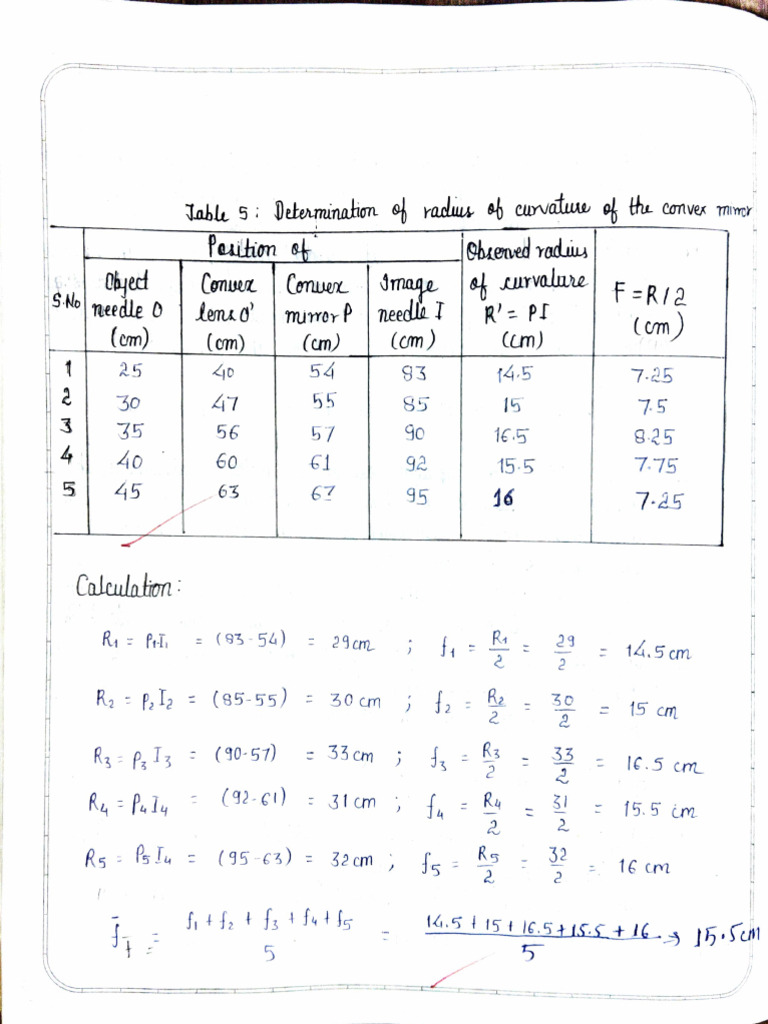 Table 5: Determination of radius of curvature of the convex mirror
Position of
S.No
Object needle O (cm)
Convex lens O' (cm)
Convex mirror P (cm)
Image needle I (cm)
Observed radius of curvature R' = PI (cm)
F = R/2 (cm)
1 25 40 54 83 14.5 7.25
2 30 47 55 85 15 7.5
3 35 56 57 90 16.5 8.25
4 40 60 61 92 15.5 7.75
5 45 63 63 95 16 7.25
Calculation:
R₁ = P₁I₁ = (83-54) = 29cm ; f₁ = R₁/2 = 29/2 = 14.5cm
R₂ = P₂I₂ = (85-55) = 30 cm ; f₂ = R₂/2 = 30/2 = 15 cm
R₃ = P₃I₃ = (90-57) = 33cm ; f₃ = R₃/2 = 33/2 = 16.5 cm
R₄ = P₄I₄ = (92-61) = 31cm ; f₄ = R₄/2 = 31/2 = 15.5 cm
R₅ = P₅I₄ = (95-63) = 32cm ; f₅ = R₅/2 = 32/2 = 16 cm
f̄ = f₁ + f₂ + f₃ + f₄ + f₅ / 5 = 14.5 + 15 + 16.5 + 15.5 + 16 / 5 → 15.5cm